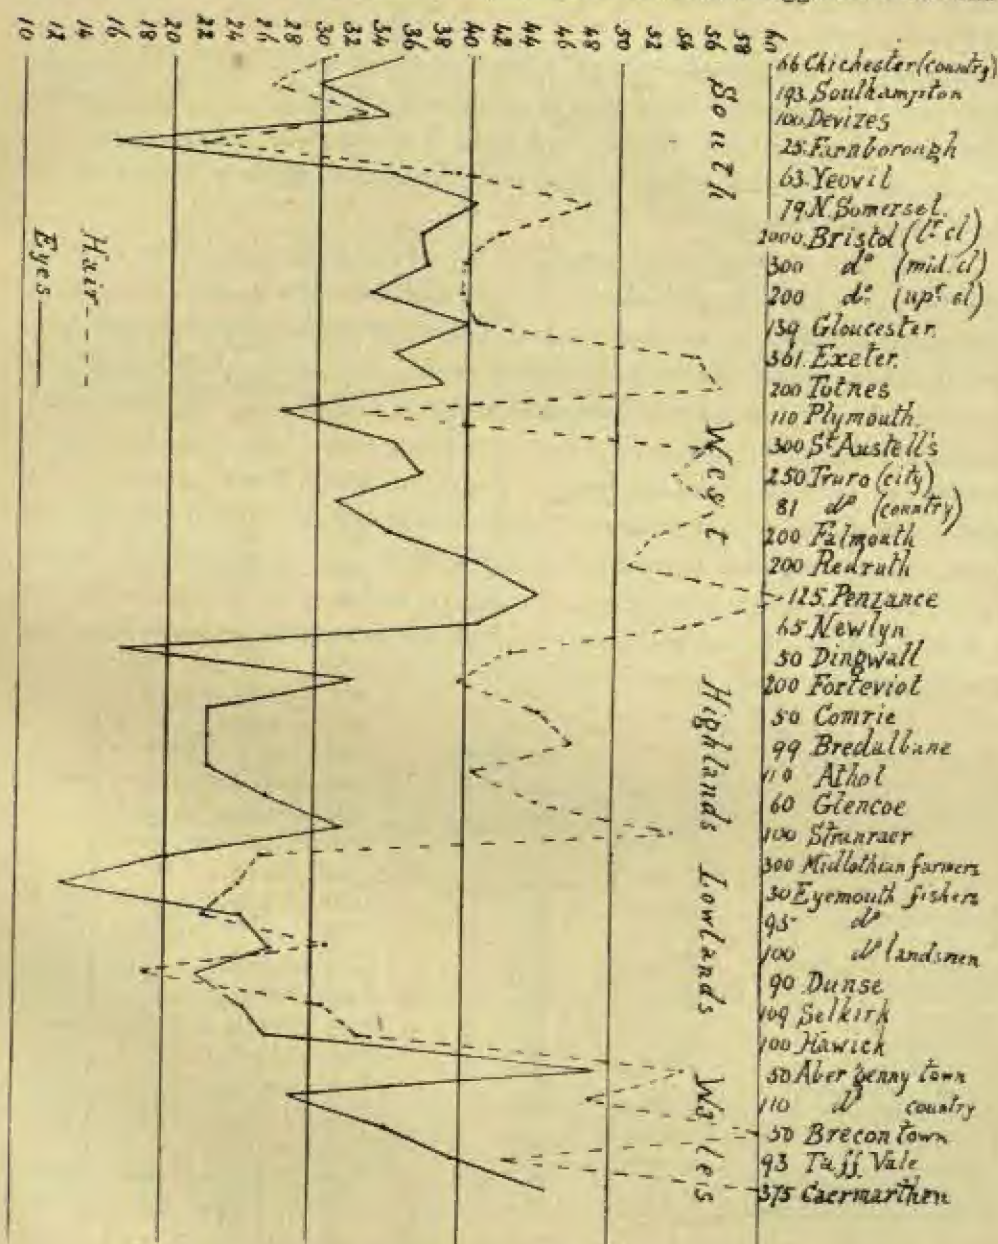 10 12 14 16 18 20 22 24 26 28 30 32 34 36 38 40 42 44 46 48 50 52 54 56 58 60
66 Chichester (country)
193. Southampton
100. Devizes
25. Farnborough
63. Yeovil
79. N. Somerset.
2000. Bristol (lr cl)
300 do (mid. cl)
200 do. (upr. cl)
139 Gloucester.
361. Exeter.
200 Totnes
110 Plymouth.
300 St Austell's
250 Truro (city)
81 do (country)
200 Falmouth
200 Redruth
125. Penzance
65 Newlyn
50 Dingwall
200 Forteviot
50 Comrie
99 Bredalbane
110 Athol
60 Glencoe
100 Stranraer
300 Midlothian farmers
30 Eyemouth fishers
95 do
100 do landsmen
90 Dunse
109 Selkirk
100 Hawick
50 Aber'genny town
110 do country
50 Brecon town
93 Taff Vale
375 Caermarthen
South
West
Highlands
Lowlands
Wales
Hair
Eyes